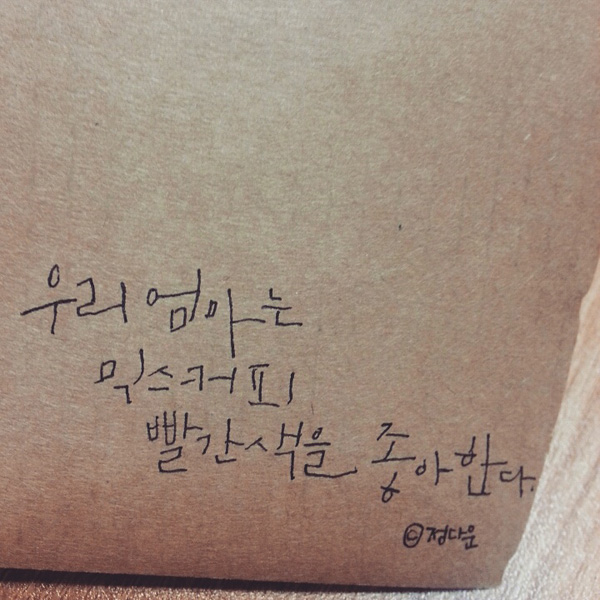 우리 엄마는
믹스커피
빨간색을 좋아한다.
©정다운